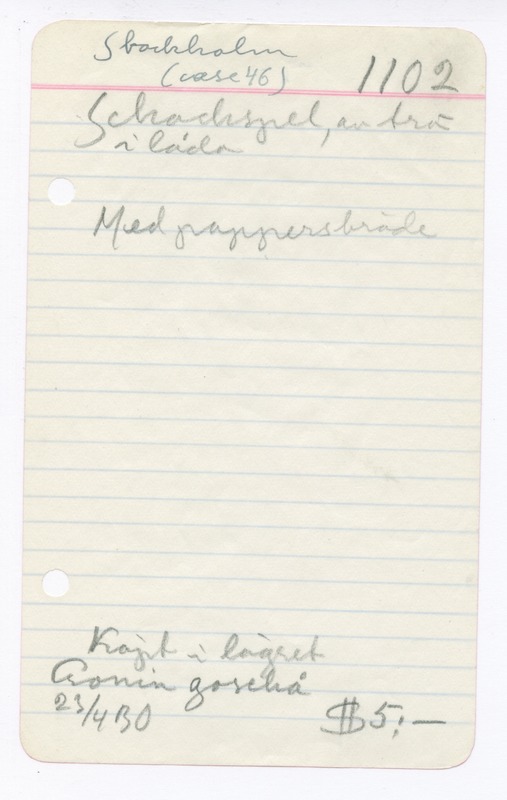 Stockholm
(case 46) 1102
Schackspel, av trä
i låda
Med pappersbräde
Köpt i lägret
23/4 30 $5:-